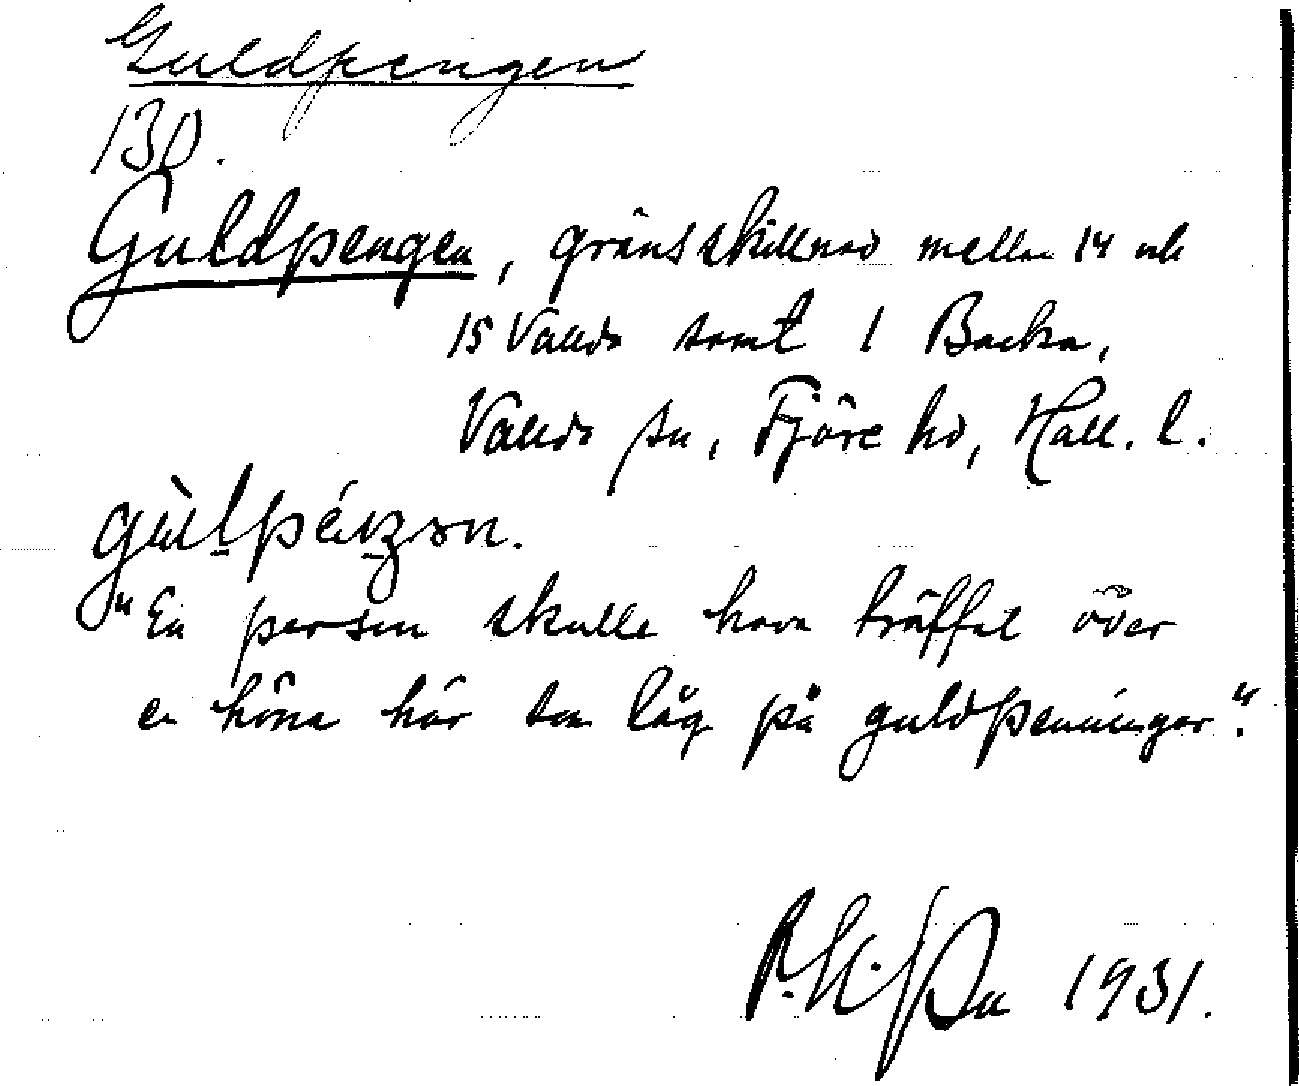 Guldpengen
130.
Guldpengen, gränsskillnad mellan 14 och
15 Vallda samt 1 Backa,
Vallda sn, Fjäre hd, Hall. l.
"En person skulle hava träffat över
en höna här som låg på guldpenningar".
1931.